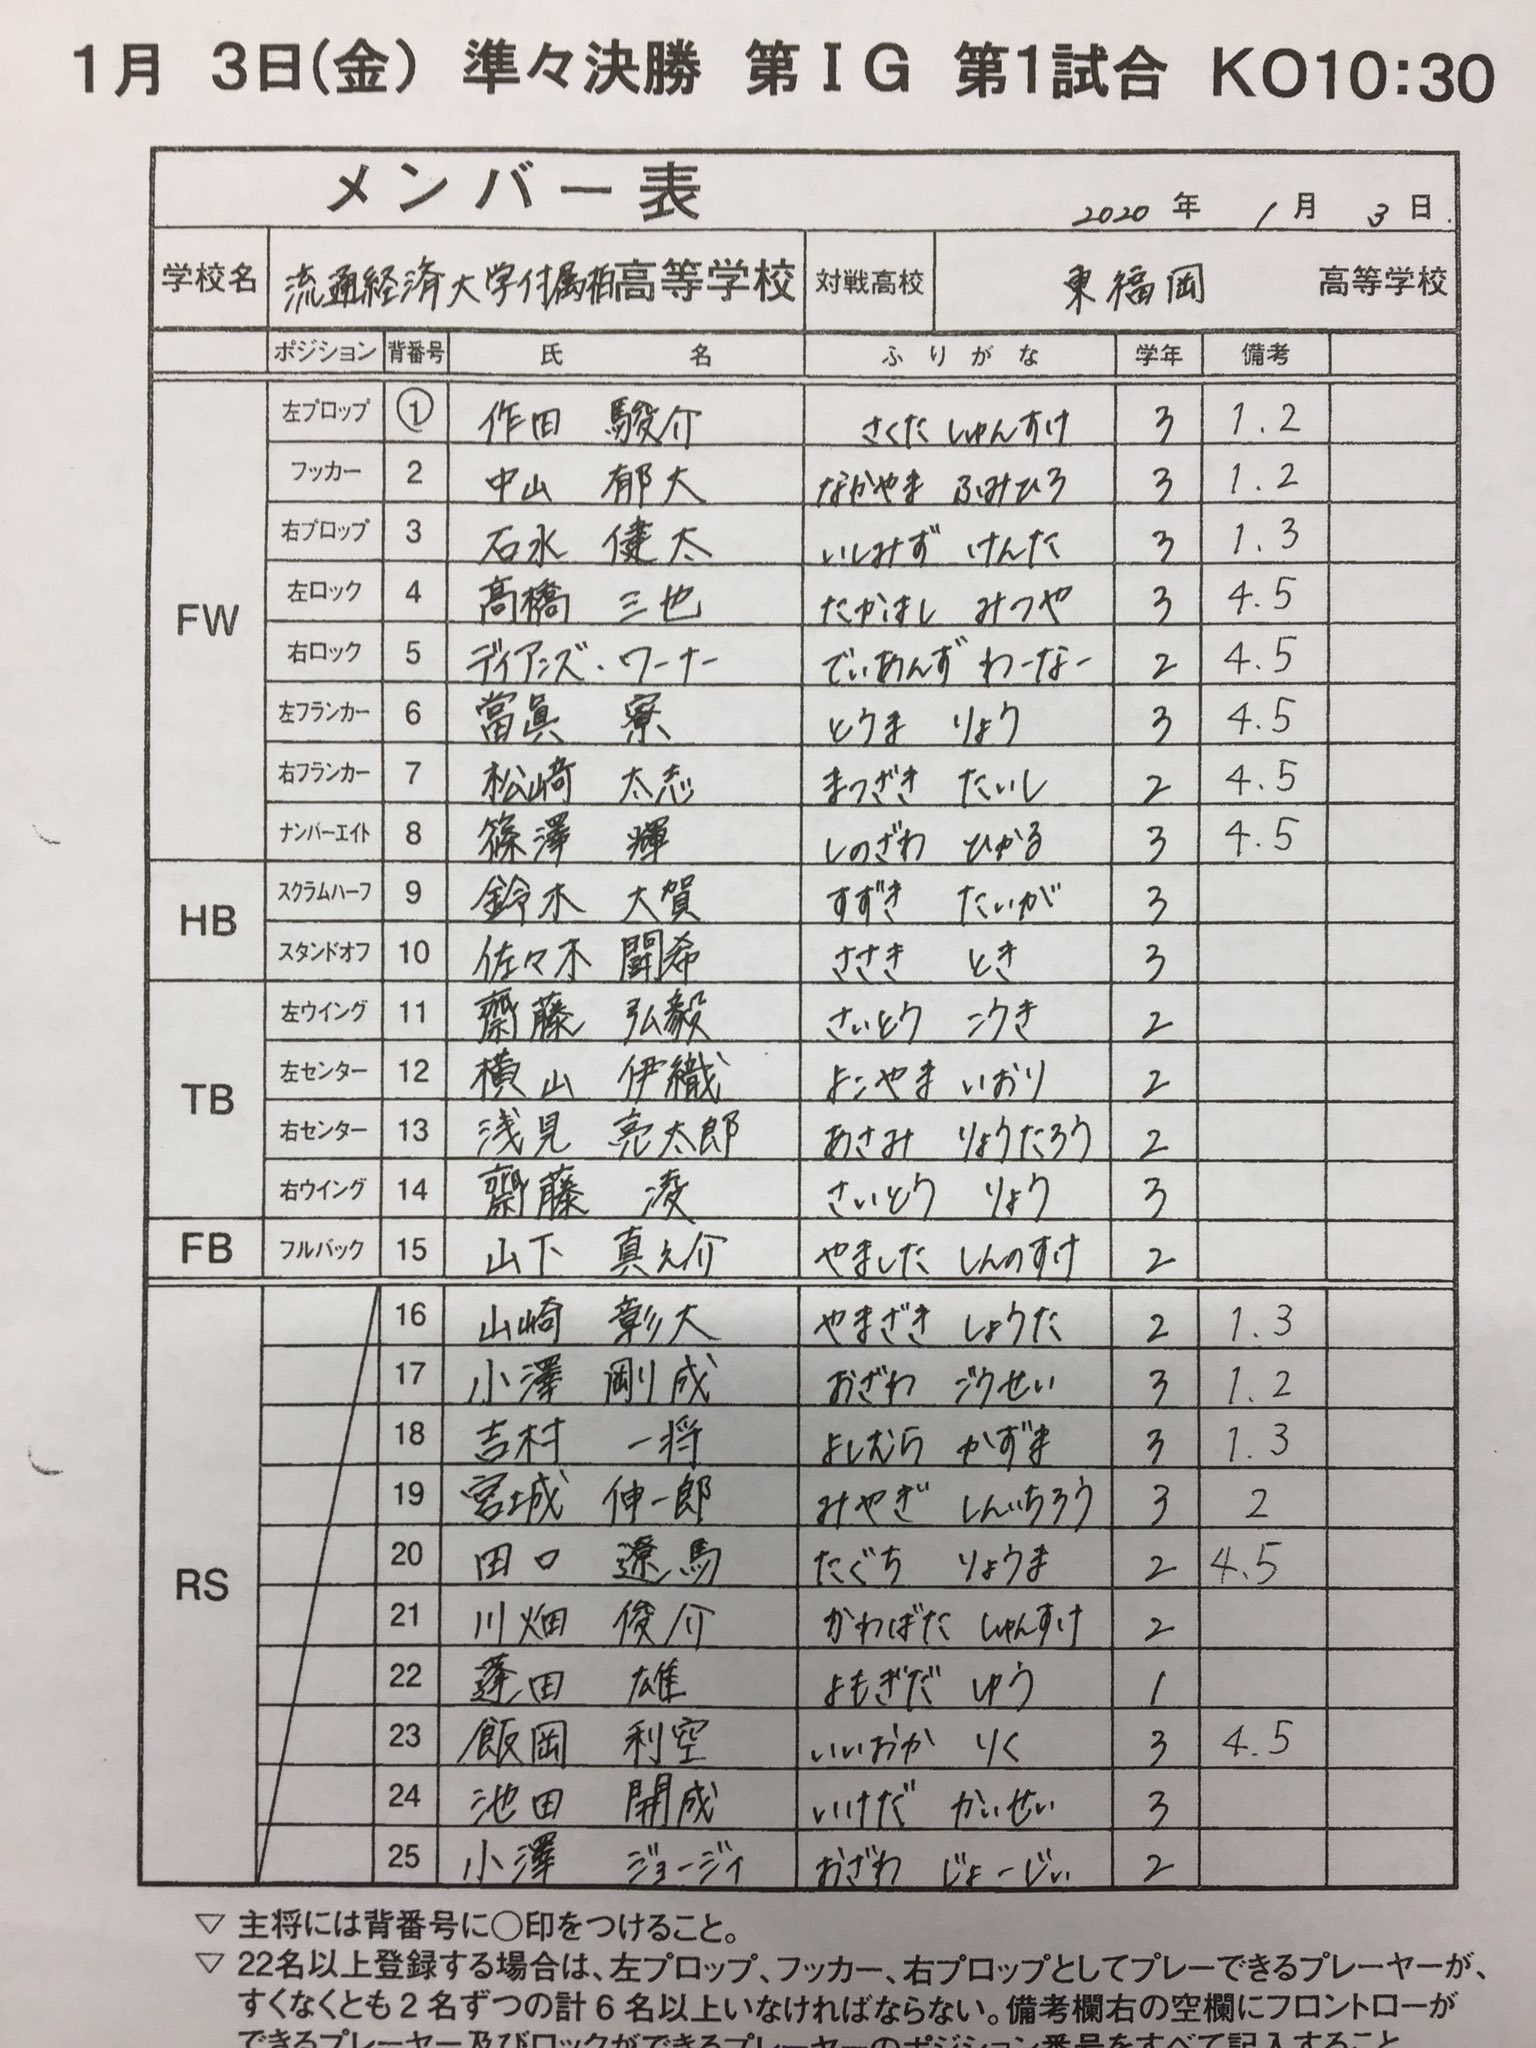 1月 3日(金) 準々決勝 第ⅠG 第1試合 KO10:30
メンバー表 2020年 1月 3日.
学校名 流通経済大学付属柏高等学校 対戦高校 東福岡 高等学校
ポジション 背番号 氏名 ふりがな 学年 備考
FW
左プロップ ① 作田 駿介 さくた しゅんすけ 3 1.2
フッカー 2 中山 郁大 なかやま ふみひろ 3 1.2
右プロップ 3 石水 健太 いしみず けんた 3 1.3
左ロック 4 髙橋 三也 たかはし みつや 3 4.5
右ロック 5 ディアンズ・ワーナー でぃあんず わーなー 2 4.5
左フランカー 6 當眞 寮 とうま りょう 3 4.5
右フランカー 7 松﨑 太志 まつざき たいし 2 4.5
ナンバーエイト 8 篠澤 輝 しのざわ ひかる 3 4.5
HB
スクラムハーフ 9 鈴木 大賀 すずき たいが 3
スタンドオフ 10 佐々木 闘希 ささき とき 3
TB
左ウイング 11 齋藤 弘毅 さいとう こうき 2
左センター 12 横山 伊織 よこやま いおり 2
右センター 13 浅見 亮太郎 あさみ りょうたろう 2
右ウイング 14 齋藤 凌 さいとう りょう 3
FB フルバック 15 山下 真之介 やました しんのすけ 2
RS
16 山崎 彰太 やまざき しょうた 2 1.3
17 小澤 剛成 おざわ ごうせい 3 1.2
18 吉村 一将 よしむら かずま 3 1.3
19 宮城 伸一郎 みやぎ しんいちろう 3 2
20 田口 遼馬 たぐち りょうま 2 4.5
21 川畑 俊介 かわばた しゅんすけ 2
22 蓬田 雄 よもぎだ ゆう 1
23 飯岡 利空 いいおか りく 3 4.5
24 池田 開成 いけだ かいせい 3
25 小澤 ジョージィ おざわ じょーじぃ 2
▽ 主将には背番号に○印をつけること。
▽ 22名以上登録する場合は、左プロップ、フッカー、右プロップとしてプレーできるプレーヤーが、
すくなくとも2名ずつの計6名以上いなければならない。備考欄右の空欄にフロントローが
できるプレーヤー及びロックができるプレーヤーのポジション番号をすべて記入すること